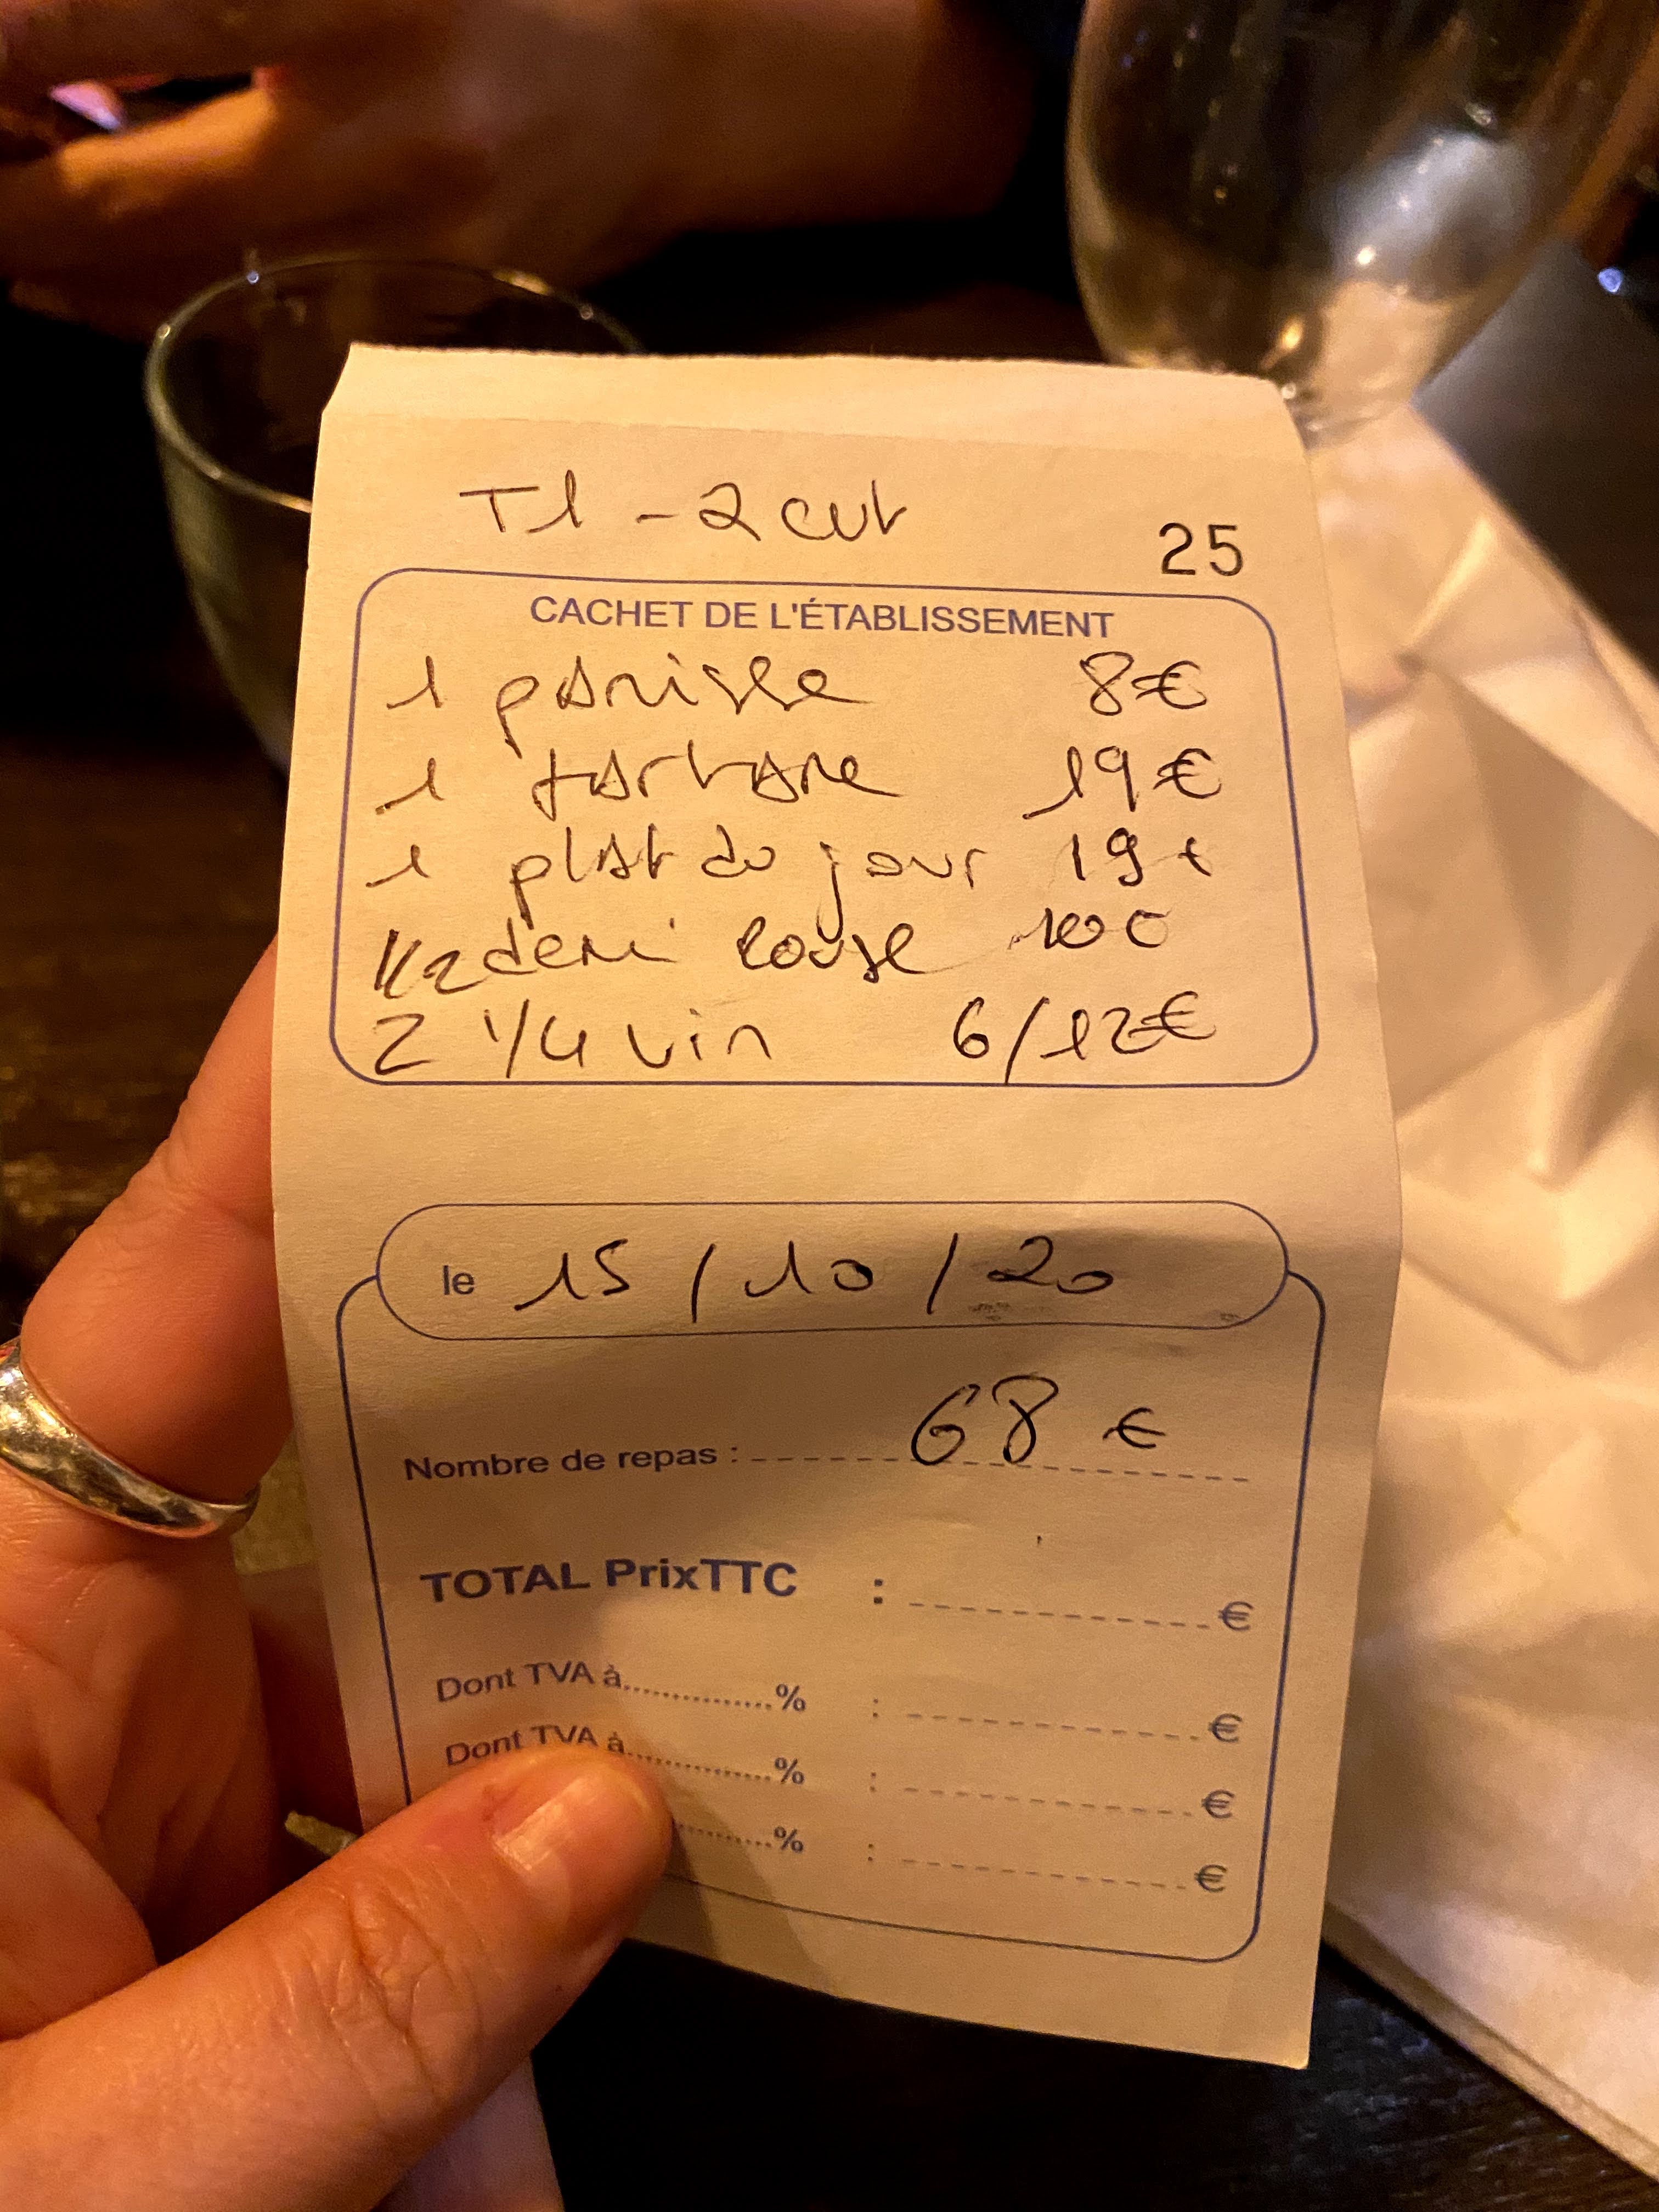 T1 - 2 cvt
25
CACHET DE L'ÉTABLISSEMENT
1 panisse 8€
1 tartare 19€
1 plat du jour 19€
1/2 demi rouge 10€
2 1/4 vin 6/12€
le 15/10/20
Nombre de repas : 68 €
TOTAL PrixTTC : €
Dont TVA à % : €
Dont TVA à % : €
% : €